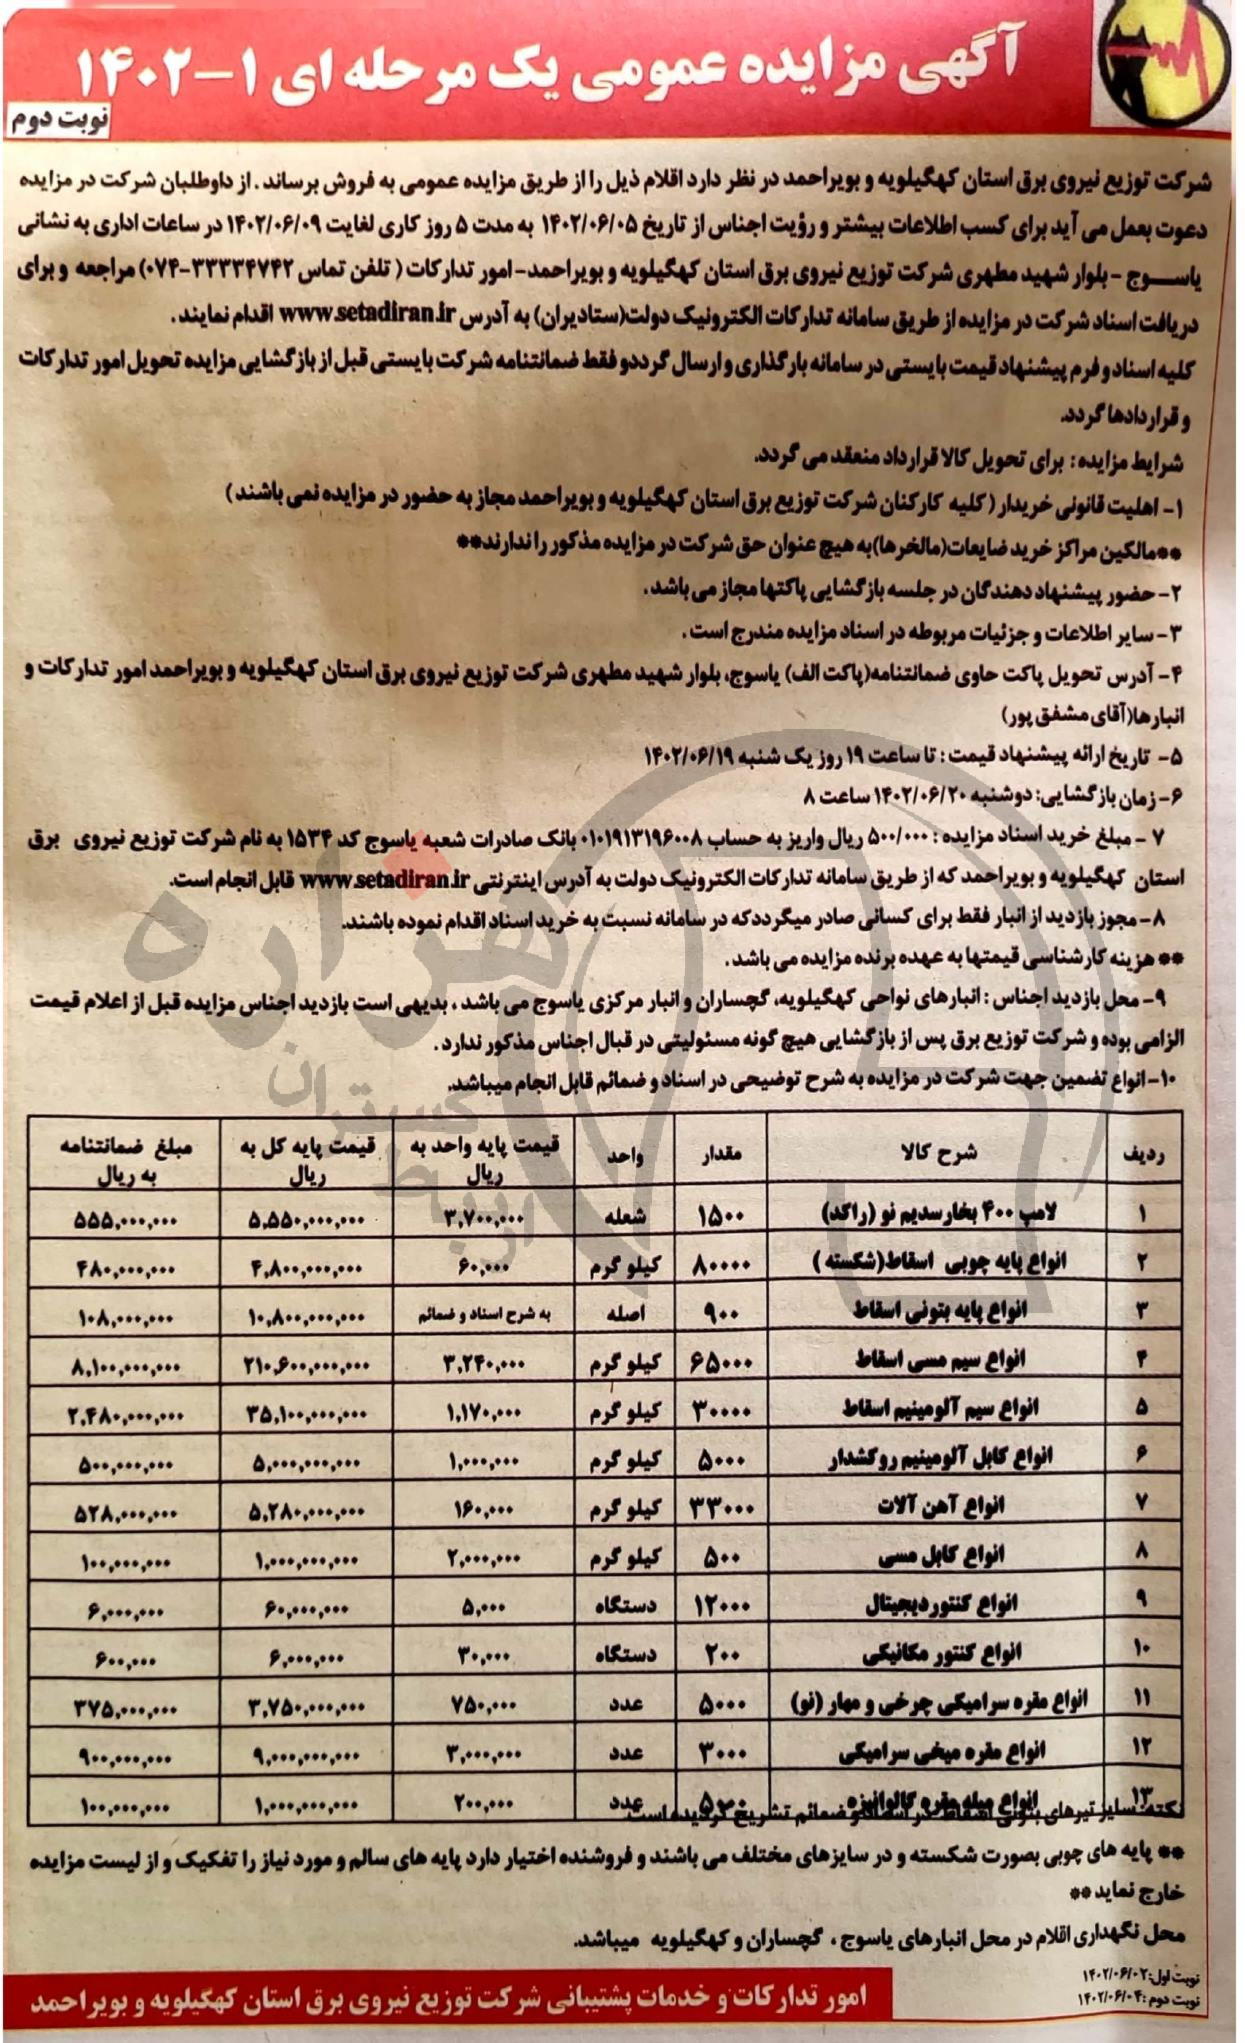 آگهی مزایده عمومی یک مرحله ای ۱-۱۴۰۲
نوبت دوم
شرکت توزیع نیروی برق استان کهگیلویه و بویراحمد در نظر دارد اقلام ذیل را از طریق مزایده عمومی به فروش برساند . از داوطلبان شرکت در مزایده
دعوت بعمل می آید برای کسب اطلاعات بیشتر و رؤیت اجناس از تاریخ ۱۴۰۲/۰۶/۰۵ به مدت ۵ روز کاری لغایت ۱۴۰۲/۰۶/۰۹ در ساعات اداری به نشانی
یاسوج - بلوار شهید مطهری شرکت توزیع نیروی برق استان کهگیلویه و بویراحمد- امور تدارکات ( تلفن تماس ۳۳۳۳۴۷۴۲-۰۷۴) مراجعه و برای
دریافت اسناد شرکت در مزایده از طریق سامانه تدارکات الکترونیک دولت(ستادیران) به آدرس www.setadiran.ir اقدام نمایند .
کلیه اسناد و فرم پیشنهاد قیمت بایستی در سامانه بارگذاری و ارسال گرددو فقط ضمانتنامه شرکت بایستی قبل از بازگشایی مزایده تحویل امور تدارکات
و قراردادها گردد.
شرایط مزایده : برای تحویل کالا قرارداد منعقد می گردد.
۱- اهلیت قانونی خریدار ( کلیه کارکنان شرکت توزیع برق استان کهگیلویه و بویراحمد مجاز به حضور در مزایده نمی باشند )
**مالکین مراکز خرید ضایعات(مالخرها)به هیچ عنوان حق شرکت در مزایده مذکور را ندارند**
۲- حضور پیشنهاد دهندگان در جلسه بازگشایی پاکتها مجاز می باشد .
۳- سایر اطلاعات و جزئیات مربوطه در اسناد مزایده مندرج است .
۴- آدرس تحویل پاکت حاوی ضمانتنامه(پاکت الف) یاسوج، بلوار شهید مطهری شرکت توزیع نیروی برق استان کهگیلویه و بویراحمد امور تدارکات و
انبارها(آقای مشفق پور)
۵- تاریخ ارائه پیشنهاد قیمت : تا ساعت ۱۹ روز یک شنبه ۱۴۰۲/۰۶/۱۹
۶- زمان بازگشایی: دوشنبه ۱۴۰۲/۰۶/۲۰ ساعت ۸
۷ - مبلغ خرید اسناد مزایده : ۵۰۰/۰۰۰ ریال واریز به حساب ۰۱۰۱۹۱۳۱۹۶۰۰۸ بانک صادرات شعبه یاسوج کد ۱۵۳۴ به نام شرکت توزیع نیروی برق
استان کهگیلویه و بویراحمد که از طریق سامانه تدارکات الکترونیک دولت به آدرس اینترنتی www.setadiran.ir قابل انجام است.
۸- مجوز بازدید از انبار فقط برای کسانی صادر میگرددکه در سامانه نسبت به خرید اسناد اقدام نموده باشند.
** هزینه کارشناسی قیمتها به عهده برنده مزایده می باشد .
۹- محل بازدید اجناس : انبارهای نواحی کهگیلویه، گچساران و انبار مرکزی یاسوج می باشد . بدیهی است بازدید اجناس مزایده قبل از اعلام قیمت
الزامی بوده و شرکت توزیع برق پس از بازگشایی هیچ گونه مسئولیتی در قبال اجناس مذکور ندارد .
۱۰- انواع تضمین جهت شرکت در مزایده به شرح توضیحی در اسناد و ضمائم قابل انجام میباشد.
ردیف شرح کالا مقدار واحد قیمت پایه واحد به ریال قیمت پایه کل به ریال مبلغ ضمانتنامه به ریال
۱ لامپ ۴۰۰ بخارسدیم نو (راکد) ۱۵۰۰ شعله ۳,۷۰۰,۰۰۰ ۵,۵۵۰,۰۰۰,۰۰۰ ۵۵۵,۰۰۰,۰۰۰
۲ انواع پایه چوبی اسقاط(شکسته ) ۸۰۰۰۰ کیلو گرم ۶۰,۰۰۰ ۴,۸۰۰,۰۰۰,۰۰۰ ۴۸۰,۰۰۰,۰۰۰
۳ انواع پایه بتونی اسقاط ۹۰۰ اصله به شرح اسناد و ضمائم ۱۰,۸۰۰,۰۰۰,۰۰۰ ۱۰۸,۰۰۰,۰۰۰
۴ انواع سیم مسی اسقاط ۶۵۰۰۰ کیلو گرم ۳,۲۴۰,۰۰۰ ۲۱۰,۶۰۰,۰۰۰,۰۰۰ ۸,۱۰۰,۰۰۰,۰۰۰
۵ انواع سیم آلومینیم اسقاط ۳۰۰۰۰ کیلو گرم ۱,۱۷۰,۰۰۰ ۳۵,۱۰۰,۰۰۰,۰۰۰ ۲,۴۸۰,۰۰۰,۰۰۰
۶ انواع کابل آلومینیم روکشدار ۵۰۰۰ کیلو گرم ۱,۰۰۰,۰۰۰ ۵,۰۰۰,۰۰۰,۰۰۰ ۵۰۰,۰۰۰,۰۰۰
۷ انواع آهن آلات ۳۳۰۰۰ کیلو گرم ۱۶۰,۰۰۰ ۵,۲۸۰,۰۰۰,۰۰۰ ۵۲۸,۰۰۰,۰۰۰
۸ انواع کابل مسی ۵۰۰ کیلو گرم ۲,۰۰۰,۰۰۰ ۱,۰۰۰,۰۰۰,۰۰۰ ۱۰۰,۰۰۰,۰۰۰
۹ انواع کنتوردیجیتال ۱۲۰۰۰ دستگاه ۵,۰۰۰ ۶۰,۰۰۰,۰۰۰ ۶,۰۰۰,۰۰۰
۱۰ انواع کنتور مکانیکی ۲۰۰ دستگاه ۳۰,۰۰۰ ۶,۰۰۰,۰۰۰ ۶۰۰,۰۰۰
۱۱ انواع مقره سرامیکی چرخی و مهار (نو) ۵۰۰۰ عدد ۷۵۰,۰۰۰ ۳,۷۵۰,۰۰۰,۰۰۰ ۳۷۵,۰۰۰,۰۰۰
۱۲ انواع مقره میخی سرامیکی ۳۰۰۰ عدد ۳,۰۰۰,۰۰۰ ۹,۰۰۰,۰۰۰,۰۰۰ ۹۰۰,۰۰۰,۰۰۰
۱۳ انواع میله مقره گالوانیزه عدد ۲۰۰,۰۰۰ ۱,۰۰۰,۰۰۰,۰۰۰ ۱۰۰,۰۰۰,۰۰۰
نکته: سایز تیرهای بتونی اسقاط در اسناد و ضمائم تشریح گردیده است
** پایه های چوبی بصورت شکسته و در سایزهای مختلف می باشند و فروشنده اختیار دارد پایه های سالم و مورد نیاز را تفکیک و از لیست مزایده
خارج نماید**
محل نگهداری اقلام در محل انبارهای یاسوج ، گچساران و کهگیلویه میباشد.
نوبت اول: ۱۴۰۲/۰۶/۰۲
نوبت دوم : ۱۴۰۲/۰۶/۰۴
امور تدارکات و خدمات پشتیبانی شرکت توزیع نیروی برق استان کهگیلویه و بویراحمد
هزاره